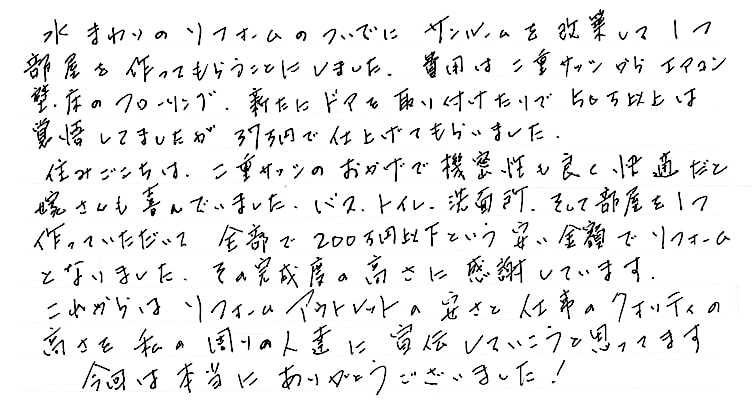 水まわりのリフォームのついでにサンルームを改築して1つ
部屋を作ってもらうことにしました。費用は二重サッシからエアコン
壁・床のフローリング、新たにドアを取り付けたりで50万以上は
覚悟してましたが37万円で仕上げてもらいました。
住みごこちは、二重サッシのおかげで機密性も良く快適だと
嫁さんも喜んでいました。バス、トイレ、洗面所、そして部屋を1つ
作っていただいて全部で200万円以下という安い金額でリフォーム
となりました。その完成度の高さに感謝しています。
これからはリフォームアウトレットの安さと仕事のクォリティの
高さを私の周りの人達に宣伝していこうと思ってます
今回は本当にありがとうございました!